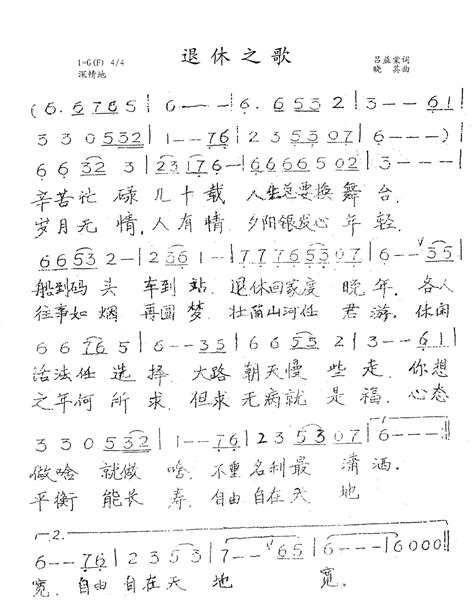 退休之歌
1=G(F) 4/4
深情地
吕益棠词
晓其曲
(6. 5765 | 6--- | 6. 6532 | 3--61 |
3 3 0532 | 1--76 | 2 35307 | 6---) |
6 6 32 3 | 23176- | 6666502 | 3--- |
辛苦忙 碌几十载 人生总要换舞台.
岁月无 情,人有情 夕阳银发心年轻.
6 6 53 2 - | 2 36 1 - | 77765307 | 6--35 |
船到码头 车到站, 退休回家度晚年. 各人
往事如烟 再圆梦, 壮丽山河任君游. 休闲
6 6 765 | 6--35 | 6 6 532 | 3--61 |
活法任选择, 大路朝天慢些走, 你想
之年何所求, 但求无病就是福. 心态
3 3 0532 | 1--76 | 2 35307 | 6--- |
做啥 就做啥, 不重名利最潇洒.
平衡 能长寿, 自由自在天地
2.
6--76 | 2 353 | 7--65 | 5--- | 6--- | 6000 ||
宽, 自由自在天地 宽.